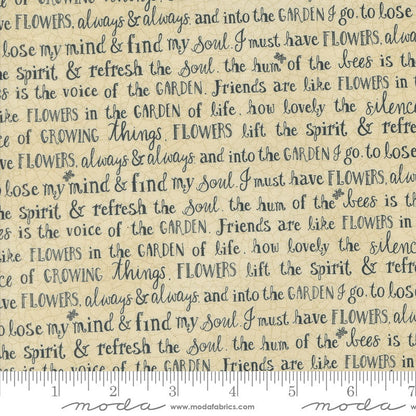 of GROWING things. FLOWERS
always & always and into the GARDEN I go. to lose
lose my mind & find my Soul. I must have FLOWERS, alwa
the spirit & refresh the soul. the hum of the bees is the
s is the voice of the GARDEN. Friends are like FLOWERS in
ike FLOWERS in the GARDEN of life. how lovely the silenc
ce of GROWING things. FLOWERS lift the spirit & refre
ve FLOWERS, always & always and into the GARDEN I go. to lose
o lose my mind & find my Soul. I must have FLOWERS, alwa
the spirit & refresh the soul. the hum of the bees is th
es is the voice of the GARDEN. Friends are like FLOWERS in
like FLOWERS in the GARDEN of life. how lovely the silenc
ce of GROWING things. FLOWERS lift the spirit & refr
ve FLOWERS, always & always and into the GARDEN I go. to lose
o lose my mind & find my Soul. I must have FLOWERS, alwa
the spirit & refresh the soul. the hum of the bees is the
is the voice of the GARDEN. Friends are like FLOWERS in
1 2 3 4 5 6 7
moda www.modafabrics.com moda